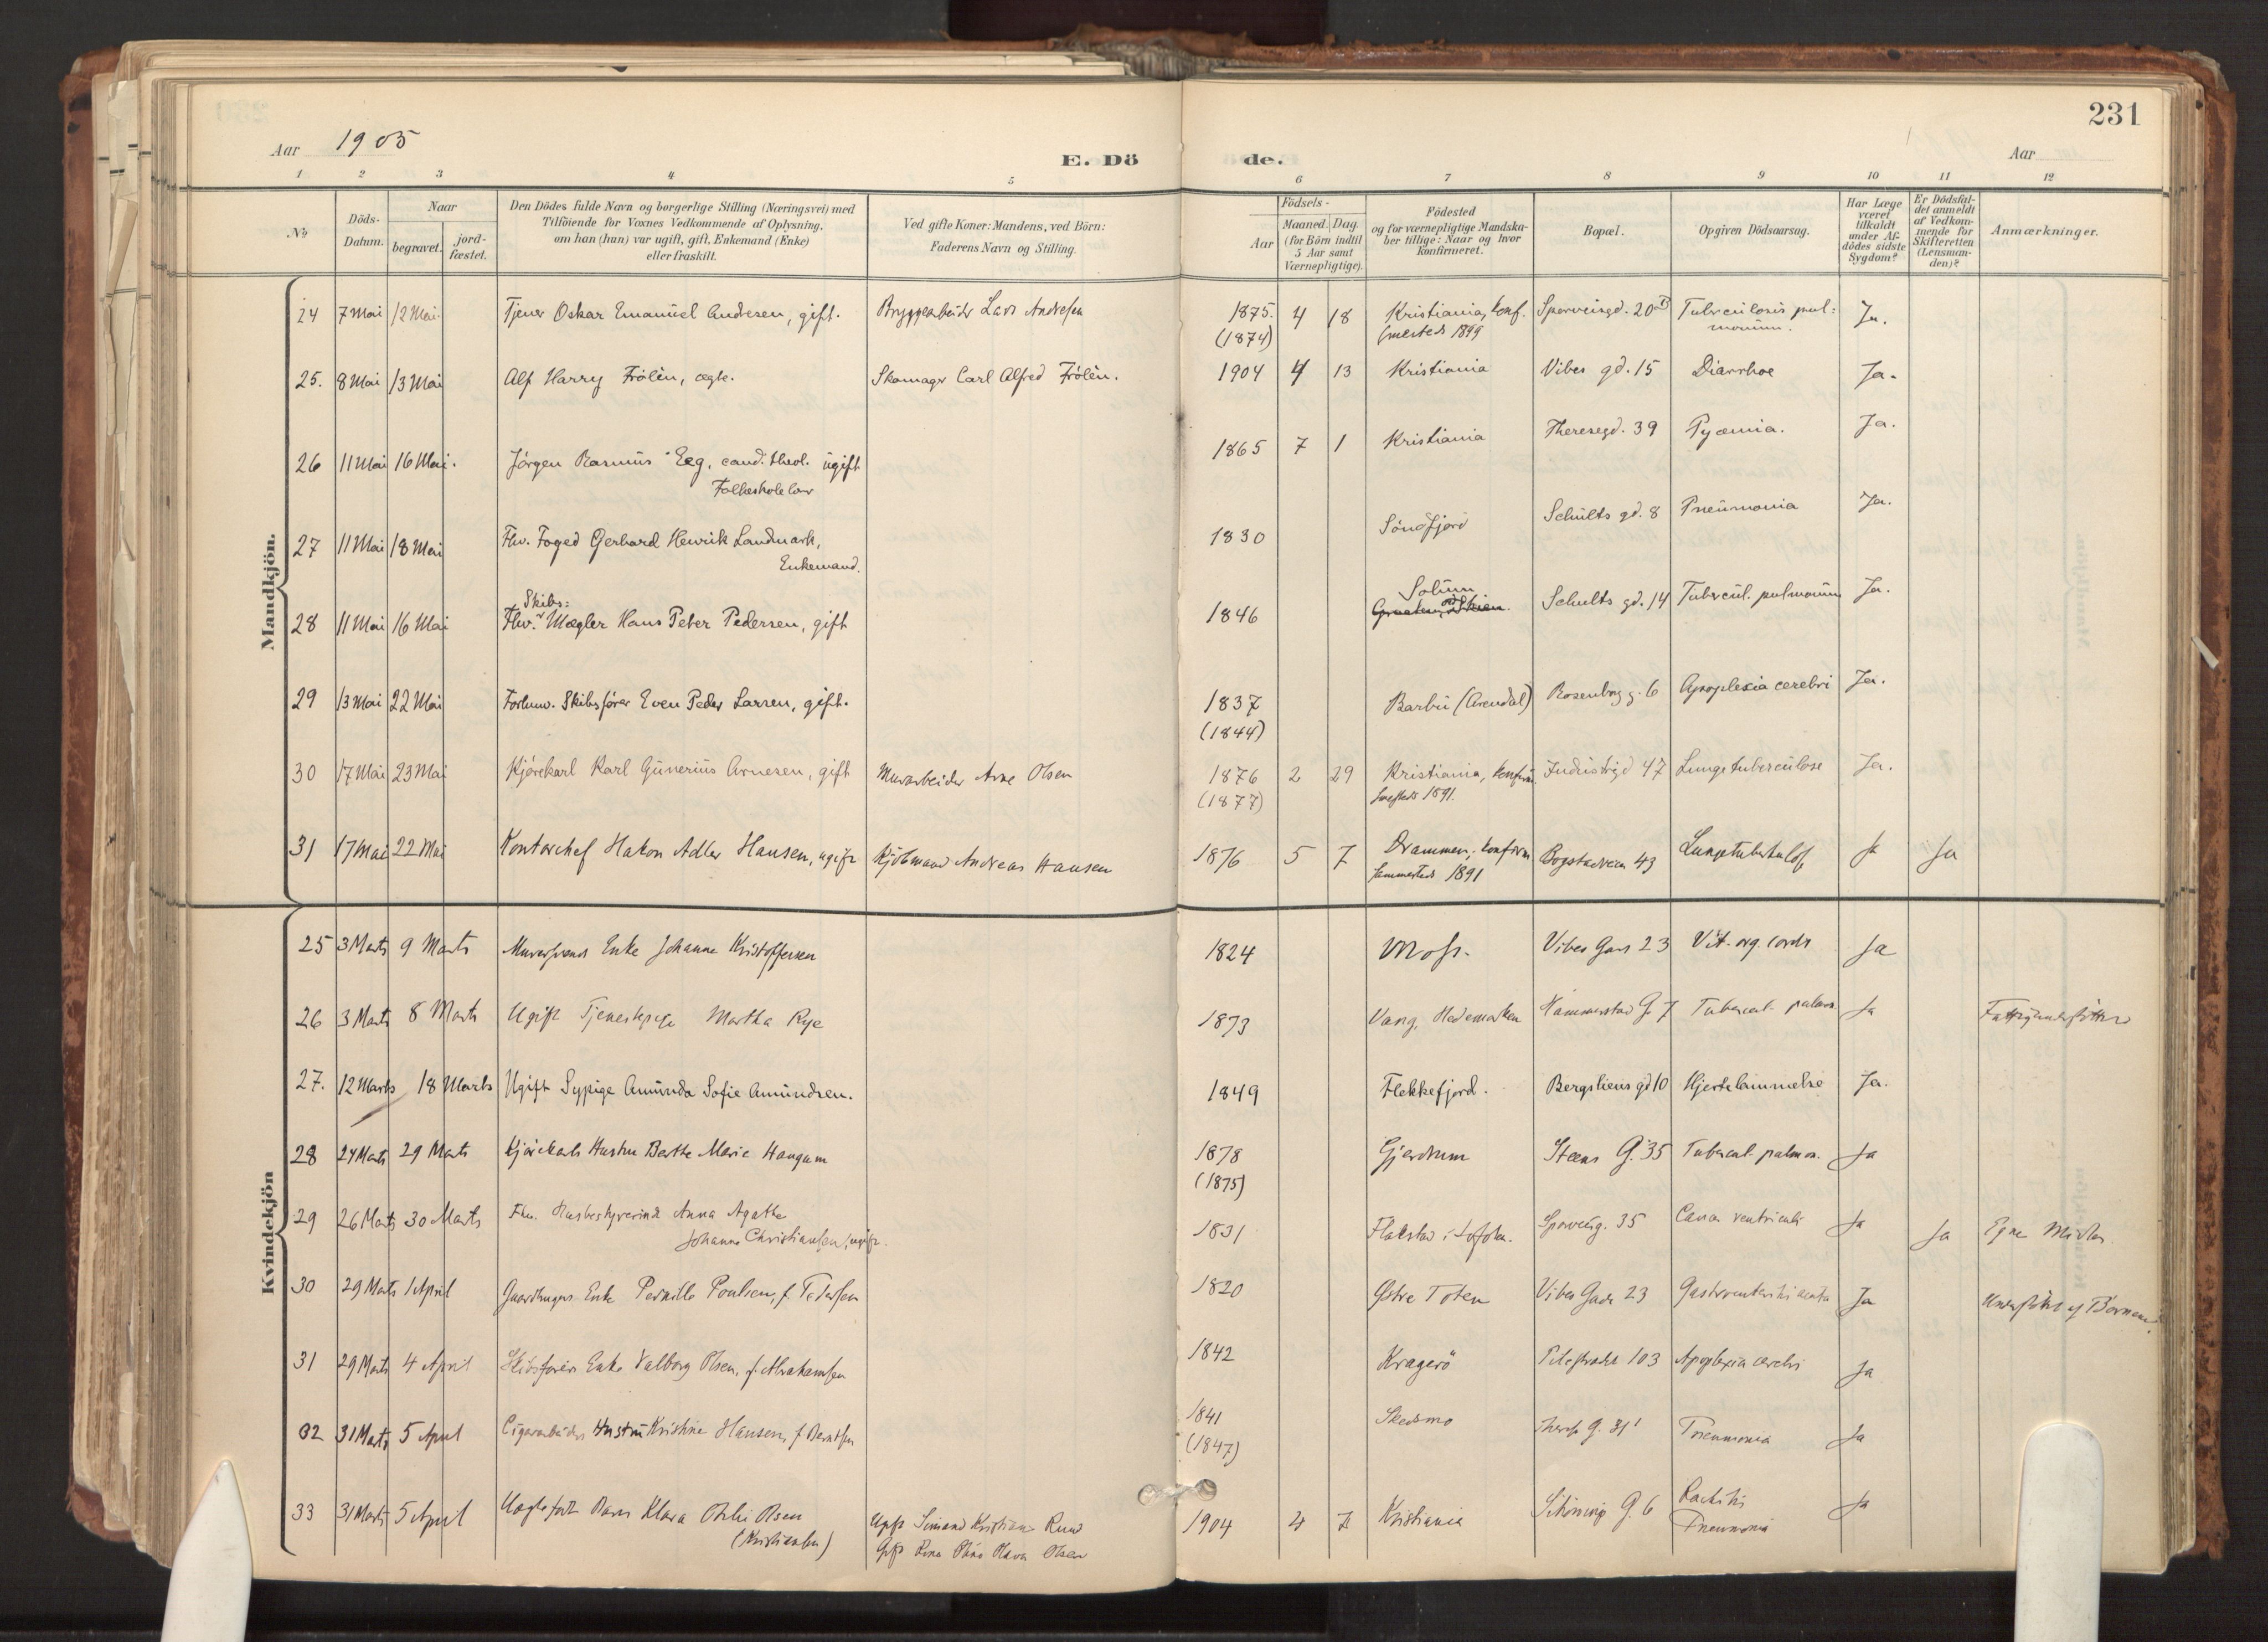 231
Aar 1905
E. Dö
de.
Aar
1 2 3 4 5 6 7 8 9 10 11 12
No
Döds-
Datum.
Naar
begravet.
jord-
fæstet.
Den Dödes fulde Navn og borgerlige Stilling (Næringsvei) med
Tilföiende for Voxnes Vedkommende af Oplysning,
om han (hun) var ugift, gift, Enkemand (Enke)
eller fraskilt.
Ved gifte Koner: Mandens, ved Börn:
Faderens Navn og Stilling.
Födsels-
Aar
Maaned. Dag.
(for Börn indtil
5 Aar samt
Værnepligtige).
Födested
og for værnepligtige Mandska-
ber tillige: Naar og hvor
konfirmeret.
Bopæl.
Opgiven Dödsaarsag.
Har Læge
været
tilkaldt
under Af-
dödes sidste
Sygdom?
Er Dödsfal-
det anmeldt
af Vedkom-
mende for
Skifteretten
(Lensman-
den)?
Anmærkninger.
Mandkjön.
24 7 Mai 12 Mai. Tjener Oskar Emanuel Andresen, gift. Bryggearbeider Lars Andresen 1875. 4 18 Kristiania, konf. Sporveisgd. 20 B Tuberculosis pul- Ja.
(1874) smesteds 1899 monum.
25. 8 Mai 13 Mai Alf Harry Frölèn, ægte. Skomager Carl Alfred Frölèn. 1904 4 13 Kristiania Vibes gd. 15 Diarrhoe Ja.
26 11 Mai 16 Mai. Jörgen Rasmus Eeg, cand. theol. ugift 1865 7 1 Kristiania Theresegd. 39 Pyæmia. Ja.
Folkeskolelærer
27 11 Mai 18 Mai Fhv. Foged Gerhard Henrik Landmark, 1830 Söndfjord Schults gd. 8 Pneumonia Ja.
Enkemand.
Skibs: Solum
28 11 Mai 16 Mai Fhv. Mægler Hans Peter Pedersen, gift 1846 Skien. Schults gd. 14 Tubercul. pulmonum Ja.
29 13 Mai 22 Mai Forhenv. Skibsförer Even Peder Larsen, gift. 1837 Barbu (Arendal) Rosenborg g. 6 Apoplexia cerebri Ja.
(1844)
30 17 Mai 23 Mai Kjörekarl Karl Gunerius Arnesen, gift Murarbeider Arne Olsen 1876 2 29 Kristiania, konfirm. Industrigd 47 Lungetuberculose Ja.
(1877) smesteds 1891.
31 17 Mai 22 Mai Kontorchef Hakon Adler Hansen, ugift Kjöbmand Andreas Hansen 1876 5 7 Drammen, konfirm Bogstadveien 43 Lungetuberkulose Ja Ja
sammesteds 1891
Kvindekjön
25 3 Marts 9 Marts Murersvends Enke Johanne Kristoffersen 1824 Moss. Vibes Gade 23 Vit. org. cordis Ja
26 3 Marts 8 Marts Ugift Tjenestepige Martha Rye 1873 Vang, Hedemarken Hammerstad G. 7 Tubercul. pulmon. Ja Fattigunderstöttet
27. 12 Marts 18 Marts Ugift Sypige Amunda Sofie Amundsen. 1849 Flekkefjord. Bergsliens gd 10 Hjertelammelse Ja.
28 24 Marts 29 Marts Kjörekarls Hustru Berthe Marie Haugum 1878 Gjerdrum Steens G. 35 Tubercul. pulmon. Ja
(1875)
29 26 Marts 30 Marts Fhv. Husbestyrerinde Anna Agathe 1831 Flakstad i Lofoten. Sporveisg. 35 Cancer ventriculi Ja Ja Egne Midler.
Johanne Christiansen, ugift.
30 29 Marts 1 April Gaardbrugers Enke Pernille Poulsen, f. Pedersen 1820 Östre Toten Vibes Gade 23 Gastroenteritis acuta Ja Understöttet af Börnene.
31 29 Marts 4 April Skibsförers Enke Valborg Olsen, f. Abrahamsen 1842 Kragerö Pilestrædet 103 Apoplexia cerebri Ja
32 31 Marts 5 April Cigararbeiders Hustru Kristine Hansen, f. Berntsen 1841 Skedsmo Theres G. 31 Pneumonia Ja
(1847)
33 31 Marts 5 April Uægtefödt Barn Klara Olsen 1904 4 7 Kristiania G. 6 Rachitis Ja
(Kristiansen) Ugift Kristian Ruud Pneumonia
Olsen